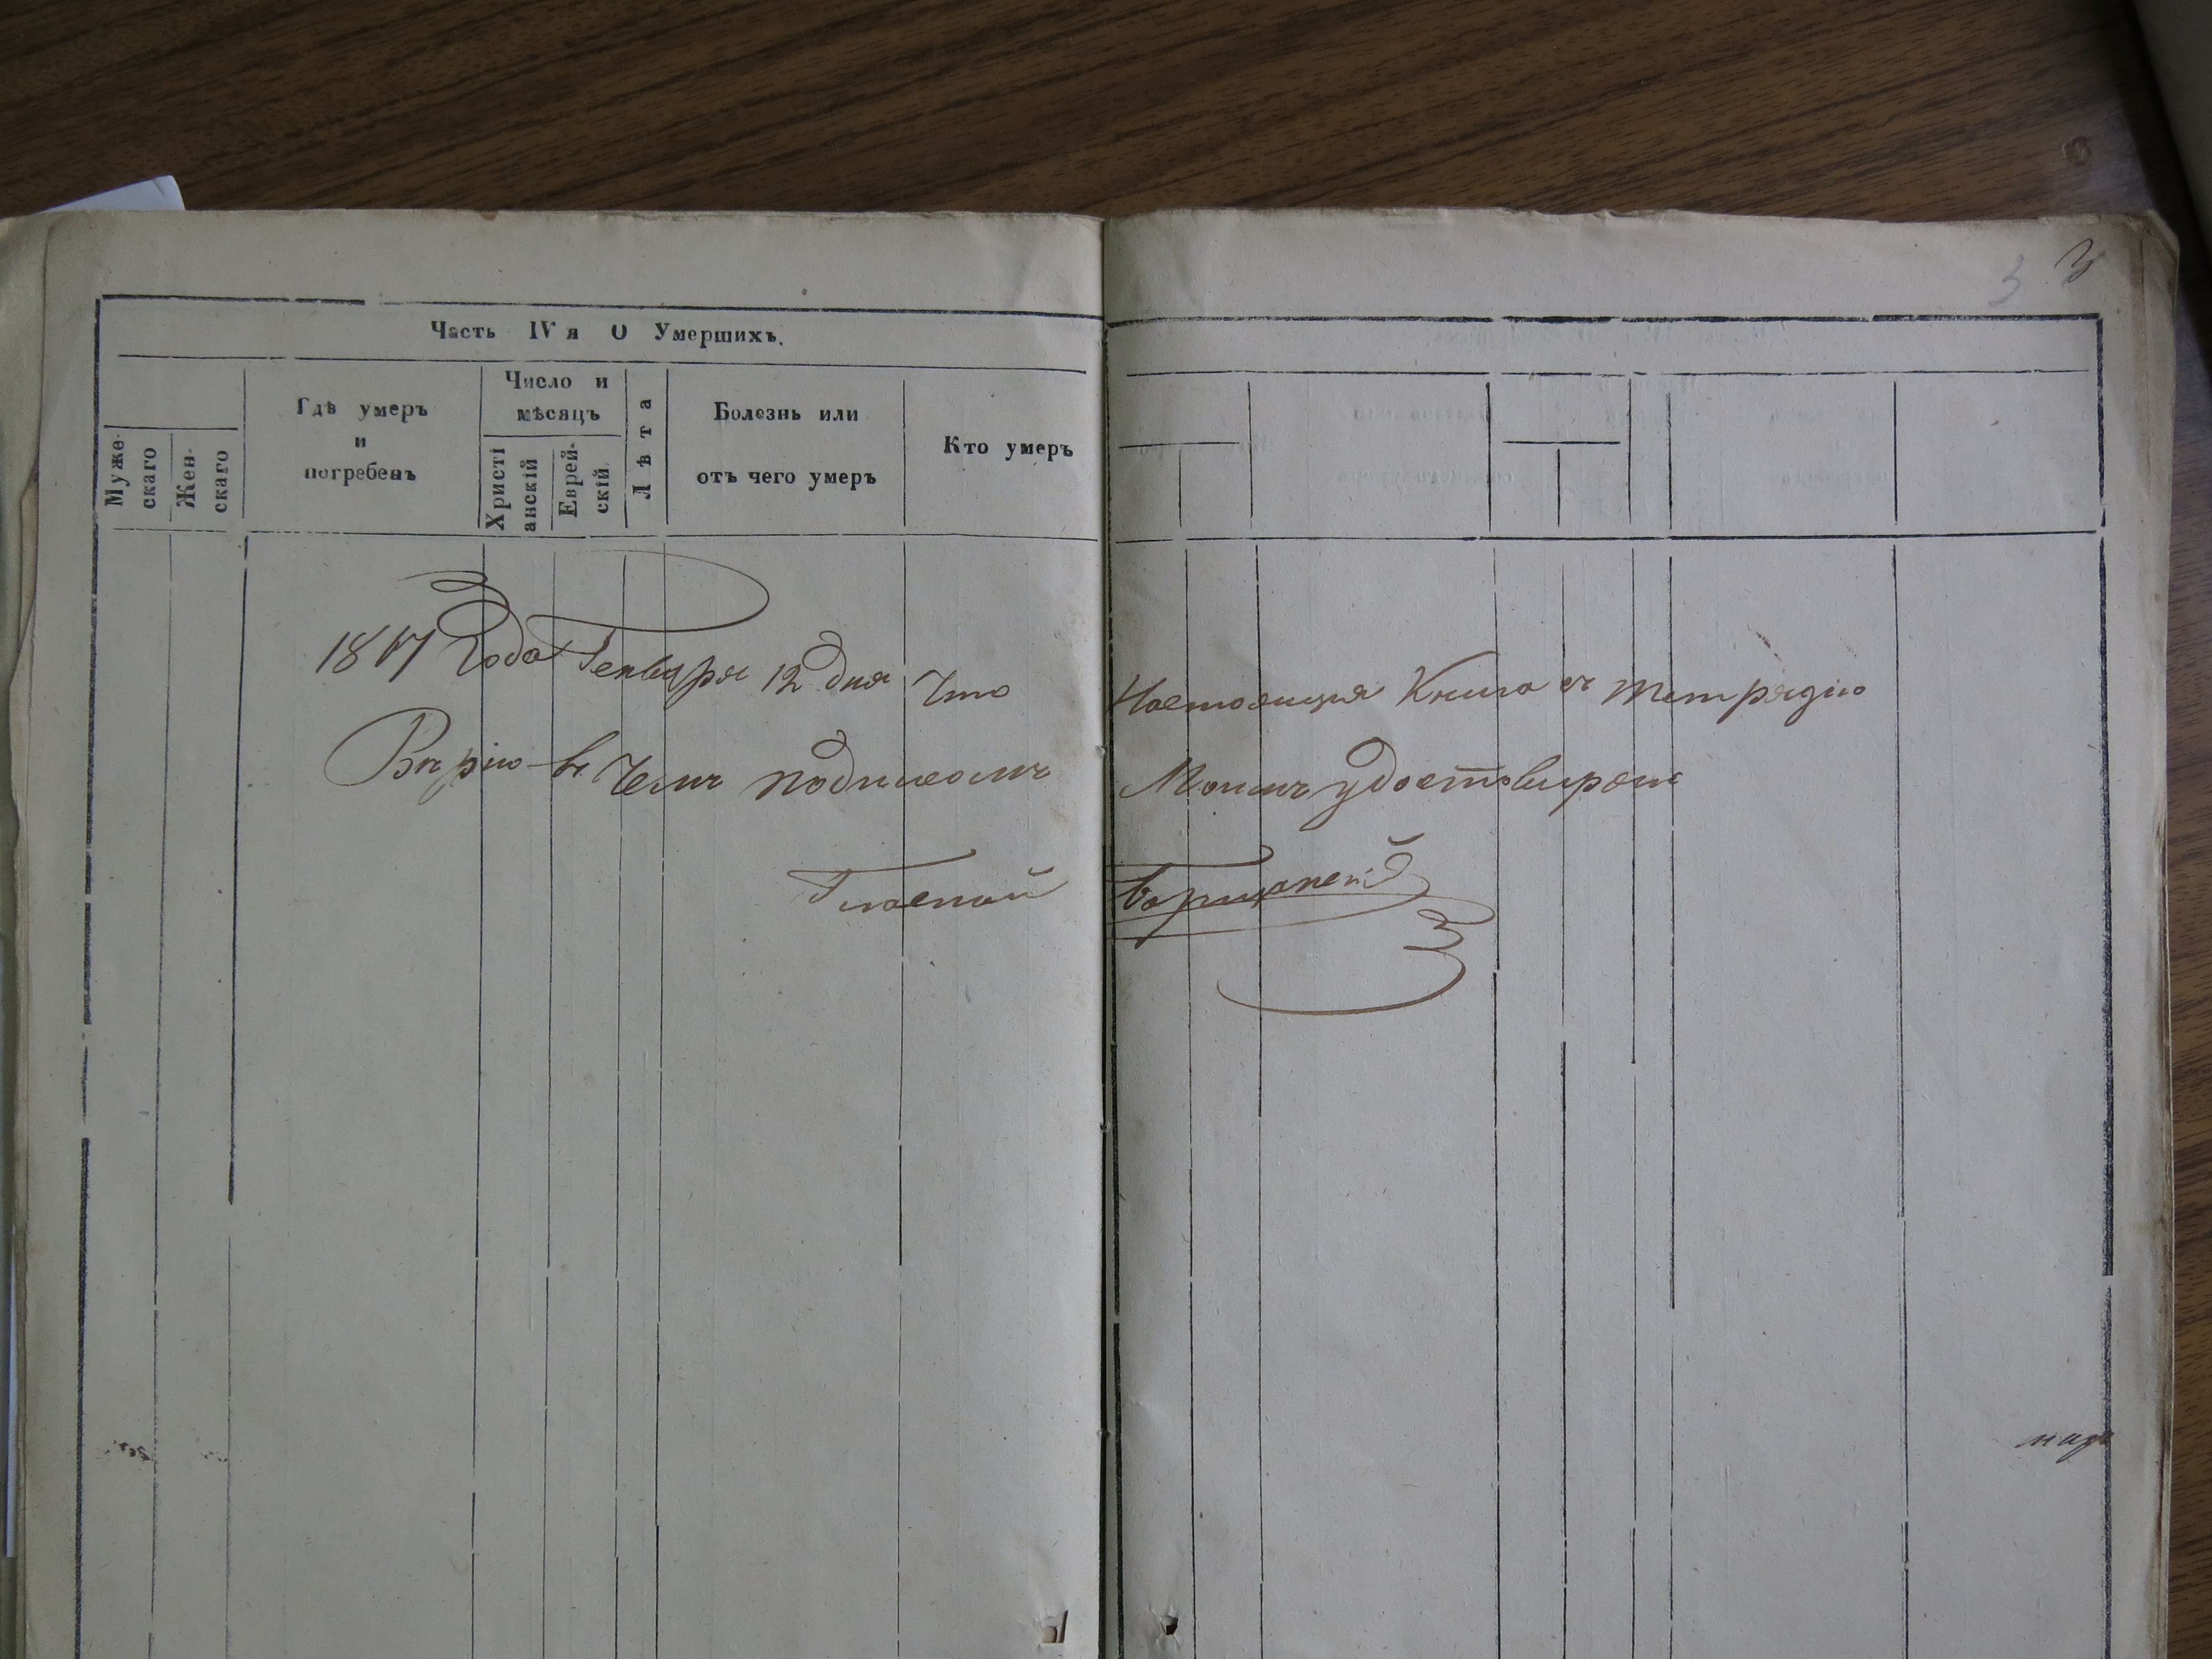 3 3
Часть IV я О Умершихъ.
Муже-
скаго
Жен-
скаго
Гдѣ умеръ
и
погребенъ
Число и
мѣсяцъ
Христі
анскій
Еврей-
скій
Лѣта
Болезнь или
отъ чего умеръ
Кто умеръ
года Генваря 12 дня Что Настоящия Книга съ тетрядію
Вѣрно въ Чемъ подписомъ Моимъ удостовѣряю
Гласной